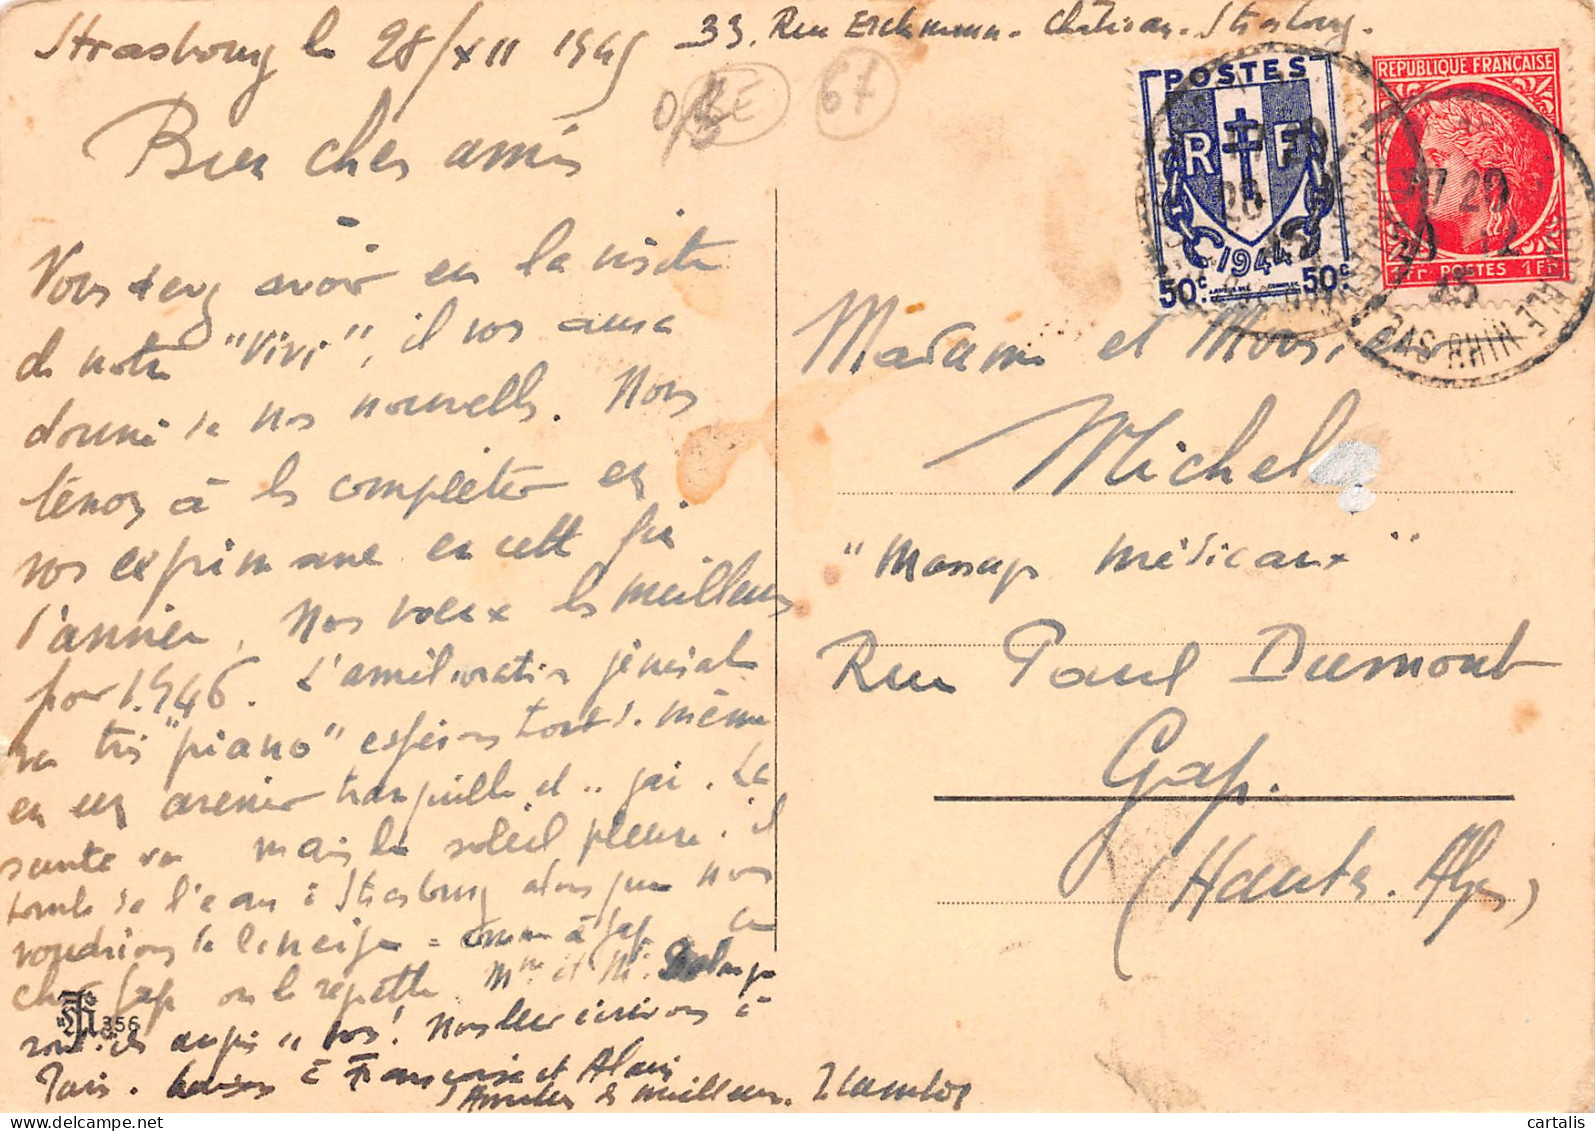 Strasbourg le 28/XII 1945
33. Rue Erckmann-Chatrian. Strasbourg.
BE 67
Bien chers amis
Vous avez avoir eu la visite
de notre "Vivi", il vos aura
donné de nos nouvelles. Nous
tenons à les compléter en
vos exprimant en cette fin
d'année, Nos voeux les meilleurs
pour 1.946. L'amélioration générale
va très "piano" espérons tout de même
en un avenir tranquille et .. gai. La
santé va mais le soleil pleure. il
tombe de l'eau à Strasbourg alors que nous
voudrions de la neige comme à Gap. Ce
cher Gap on le regrette. Mme et Mr.
sont-ils auprès de vos! Nous leur écrivons à
Paris. baisers à Françoise et Alain
Amitiés les meilleures.
356
POSTES
RF
1944
50c. 50c.
REPUBLIQUE FRANÇAISE
1Fr POSTES 1Fr
Madame et Monsieur
Michel
"Massages médicaux"
Rue Paul Dumont
Gap.
(Hautes. Alpes)
cartalis
www.delcampe.net